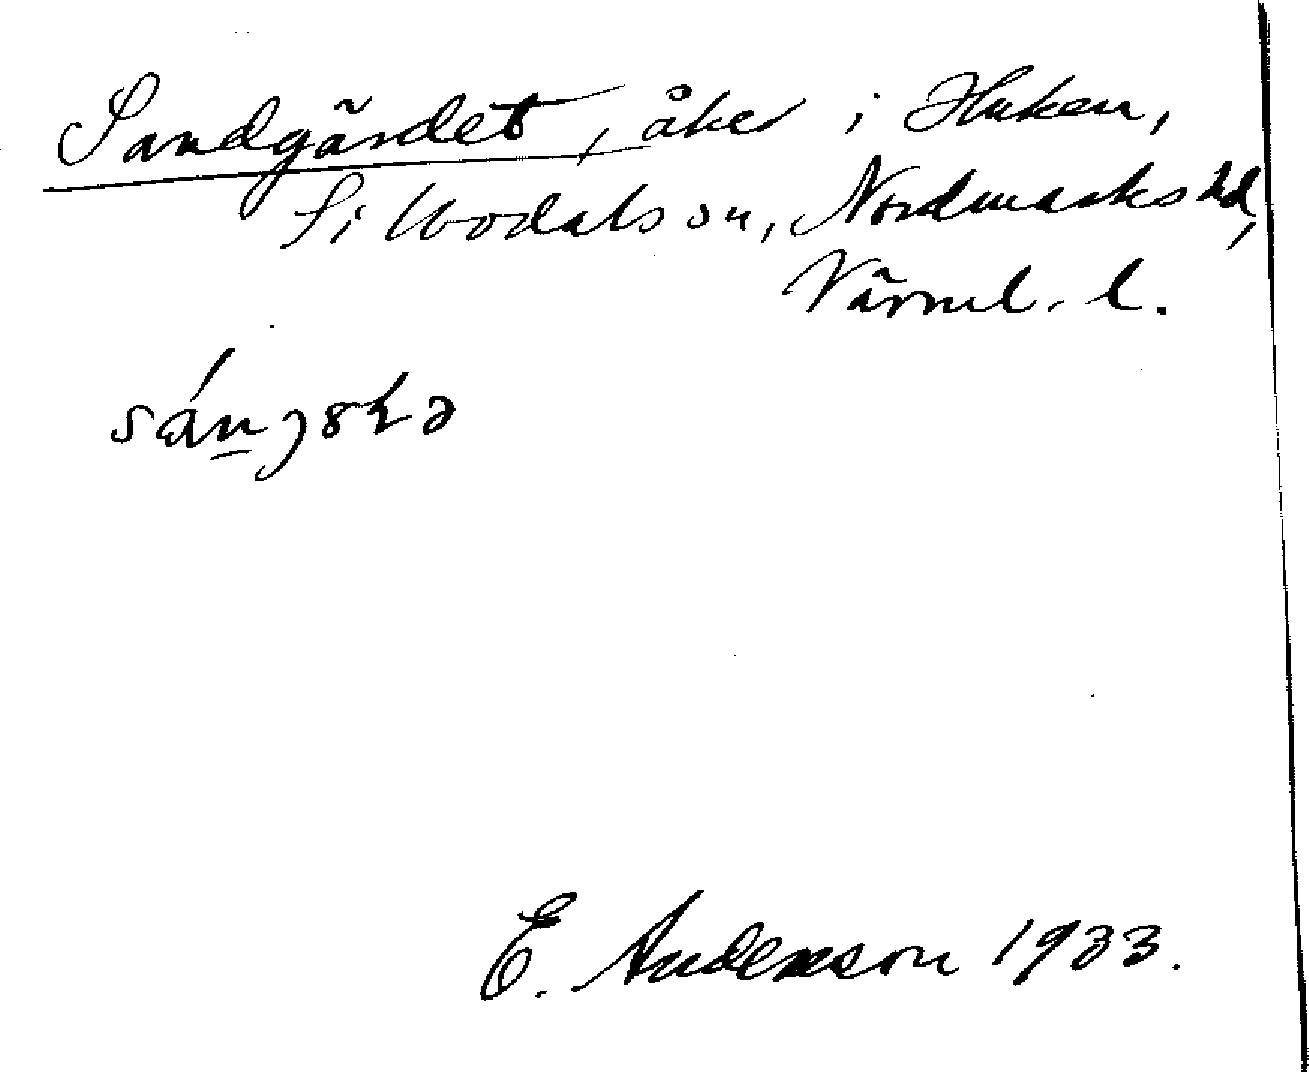 Sandgärdet, åker i Huken,
Sillbodals sn, Nordmarks hd,
Värml. l.
E. Andersson 1933.